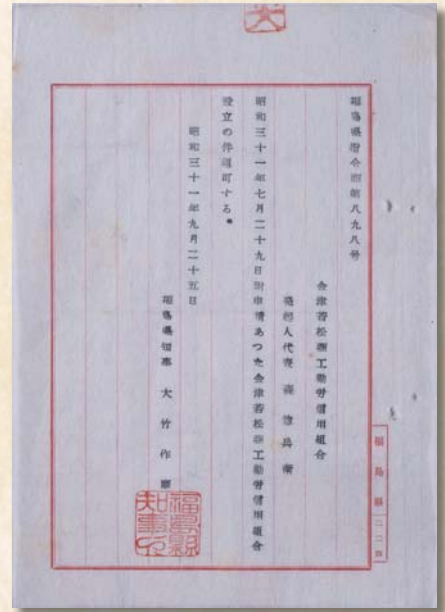 福島県指令商第八九八号
会津若松商工勤労信用組合
発起人代表 森 惣兵衛
昭和三十一年七月二十九日附申請あつた会津若松商工勤労信用組合
設立の件認可する。
昭和三十一年九月二十五日
福島県知事 大竹作摩
福島縣知事之印
福島縣